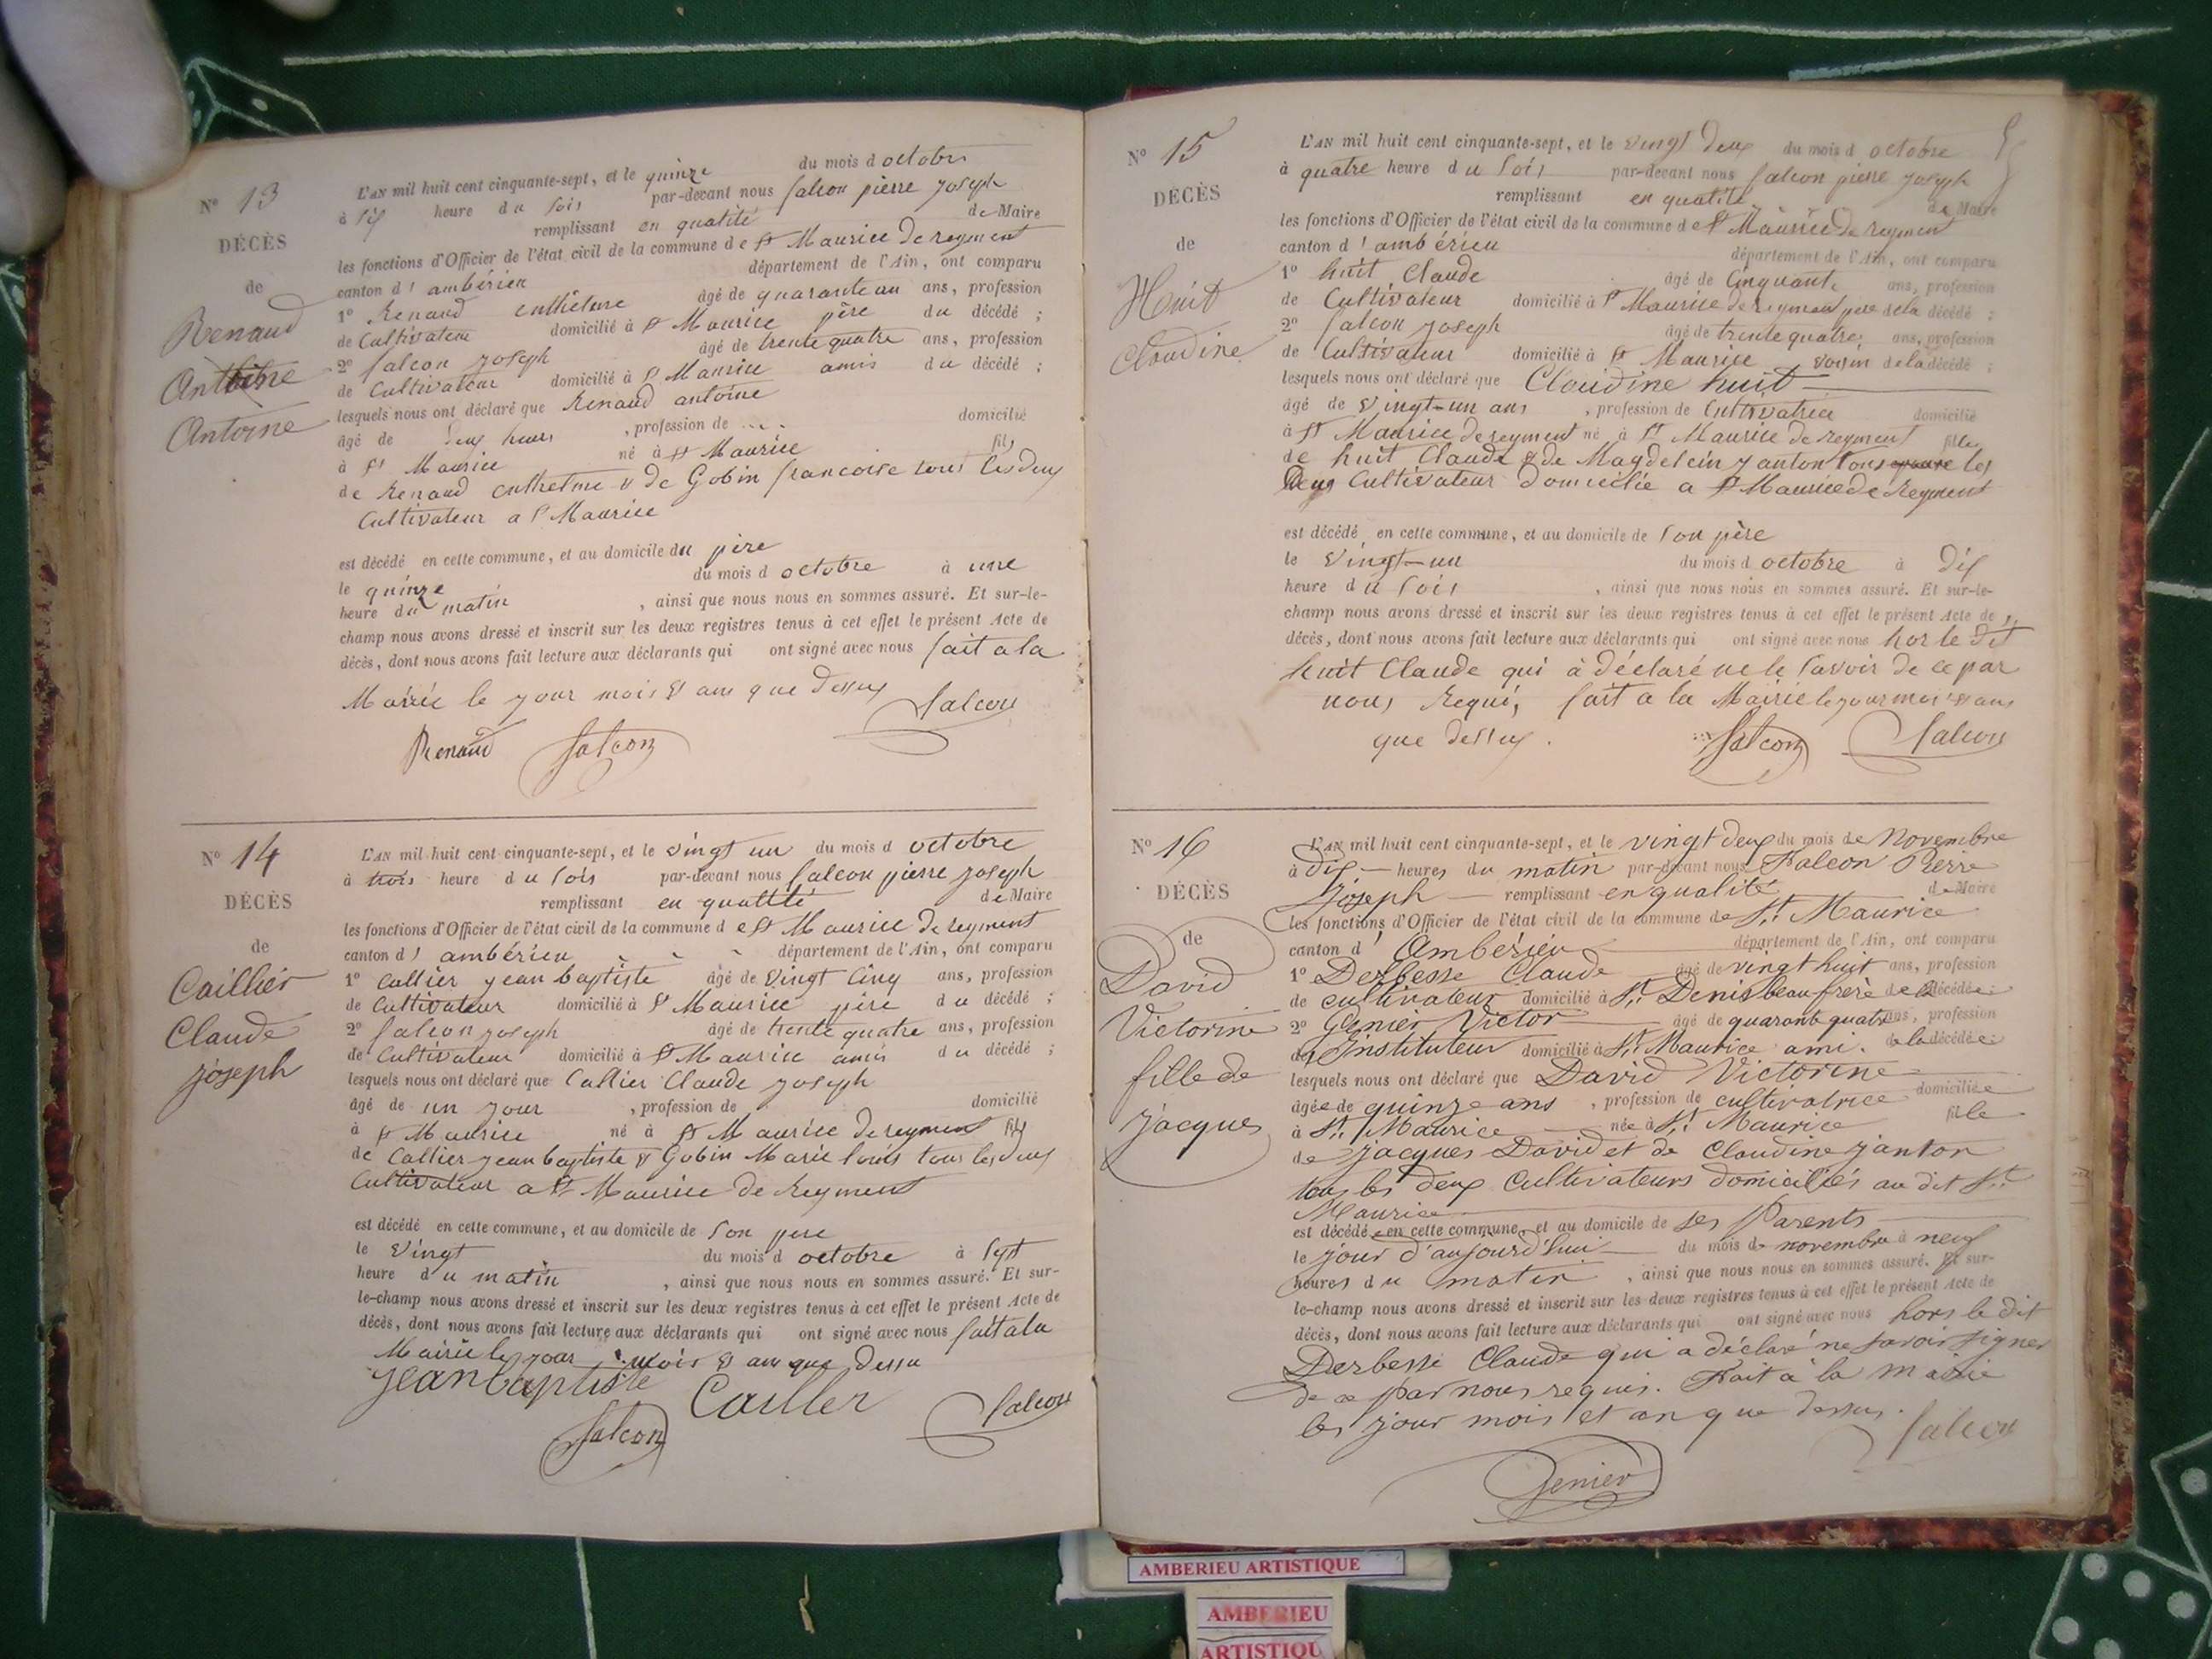 N° 13
DÉCÈS
de
Renaud
Antoine
L'AN mil huit cent cinquante-sept, et le quinze du mois d octobre
à six heure du soir par-devant nous falcon pierre joseph
remplissant en qualité de Maire
les fonctions d'Officier de l'état civil de la commune de St Maurice de reyment
canton d' ambérieu département de l'Ain, ont comparu
1° Renaud enthelme âgé de quarante un ans, profession
de Cultivateur domicilié à St Maurice père du décédé ;
2° falcon joseph âgé de trente quatre ans, profession
de Cultivateur domicilié à St Maurice amis du décédé ;
lesquels nous ont déclaré que Renaud antoine
âgé de deux heures , profession de .... domicilié
à St Maurice né à St Maurice fils
de Renaud enthelme & de Gobin francoise tous les deux
Cultivateur a St Maurice
est décédé en cette commune, et au domicile du père
le quinze du mois d octobre à une
heure du matin , ainsi que nous nous en sommes assuré. Et sur-le-
champ nous avons dressé et inscrit sur les deux registres tenus à cet effet le présent Acte de
décès, dont nous avons fait lecture aux déclarants qui ont signé avec nous fait a la
Mairie le jour mois & ans que dessus falcon
Renaud falcon
N° 14
DÉCÈS
de
Caillier
Claude
joseph
L'AN mil huit cent cinquante-sept, et le vingt un du mois d octobre
à trois heure du soir par-devant nous falcon pierre joseph
remplissant en qualité de Maire
les fonctions d'Officier de l'état civil de la commune de St Maurice de reyment
canton d' ambérieu département de l'Ain, ont comparu
1° Callier jean baptiste âgé de vingt cinq ans, profession
de Cultivateur domicilié à St Maurice père du décédé ;
2° falcon joseph âgé de trente quatre ans, profession
de Cultivateur domicilié à St Maurice amis du décédé ;
lesquels nous ont déclaré que Callier Claude joseph
âgé de un jour , profession de domicilié
à St Maurice né à St Maurice de reyment fils
de Callier jean baptiste & Gobin Marie louis tous les deux
Cultivateur a St Maurice de Reyment
est décédé en cette commune, et au domicile de son pere
le vingt du mois d octobre à sept
heure du matin , ainsi que nous nous en sommes assuré. Et sur-
le-champ nous avons dressé et inscrit sur les deux registres tenus à cet effet le présent Acte de
décès, dont nous avons fait lecture aux déclarants qui ont signé avec nous fait a la
Mairie le jour mois & ans que dessu
jean baptiste Cailler falcon
falcon
N° 15
DÉCÈS
de
Huit
Claudine
L'AN mil huit cent cinquante-sept, et le vingt deux du mois d octobre
à quatre heure du soir par-devant nous falcon pierre joseph
remplissant en qualité de Maire
les fonctions d'Officier de l'état civil de la commune de St Maurice de reyment
canton d' ambérieu département de l'Ain, ont comparu
1° huit Claude âgé de Cinquante ans, profession
de Cultivateur domicilié à St Maurice de reyment pere de la décédé ;
2° falcon joseph âgé de trente quatre ans, profession
de Cultivateur domicilié à St Maurice voisin de la décédé ;
lesquels nous ont déclaré que Claudine huit
âgé de vingt-un ans , profession de Cultivatrice domicilié
à St Maurice de reyment né à St Maurice de reyment fille
de huit Claude & de Magdelein janton tous les
deux Cultivateur domicilié a St Maurice de Reyment
est décédé en cette commune, et au domicile de son père
le vingt-un du mois d octobre à dix
heure du soir , ainsi que nous nous en sommes assuré. Et sur-le-
champ nous avons dressé et inscrit sur les deux registres tenus à cet effet le présent Acte de
décès, dont nous avons fait lecture aux déclarants qui ont signé avec nous hor le dit
huit Claude qui à déclaré ne le savoir de ce par
nous Requi, fait a la Mairie le jour mois & ans
que dessus . falcon falcon
N° 16
DÉCÈS
de
David
Victorine
fille de
jacques
L'AN mil huit cent cinquante-sept, et le vingt deux du mois de Novembre
à dix heures du matin par-devant nous Falcon Pierre
Joseph remplissant en qualité de Maire
les fonctions d'Officier de l'état civil de la commune de St Maurice
canton d' Ambérieu département de l'Ain, ont comparu
1° Derbesse Claude âgé de vingt huit ans, profession
de cultivateur domicilié à St Denis beau frere de la décédée ;
2° Genier Victor âgé de quarante quatre ans, profession
de Instituteur domicilié à St Maurice ami de la décédée ;
lesquels nous ont déclaré que David Victorine
âgée de quinze ans , profession de cultivatrice domiciliée
à St Maurice née à St Maurice fille
de jacques David et de Claudine janton
tous les deux Cultivateurs domiciliés au dit St
Maurice
est décédée en cette commune, et au domicile de ses Parents
le jour d'aujourd'hui du mois de novembre à neuf
heures du matin , ainsi que nous nous en sommes assuré. Et sur-
le-champ nous avons dressé et inscrit sur les deux registres tenus à cet effet le présent Acte de
décès, dont nous avons fait lecture aux déclarants qui ont signé avec nous hors le dit
Derbesse Claude qui a déclaré ne savoir signer
de ce par nous requis. Fait à la mairie
les jour mois et an que dessus. falcon
Genier
AMBERIEU ARTISTIQUE
AMBERIEU
ARTISTIQU